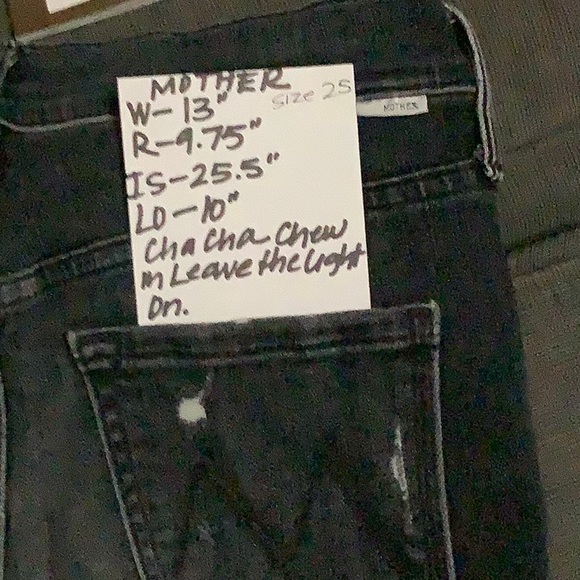 MOTHER
W-13" Size 25
R-9.75"
IS-25.5"
LO-10"
Cha Cha Chew
in Leave the Light
On.
MOTHER